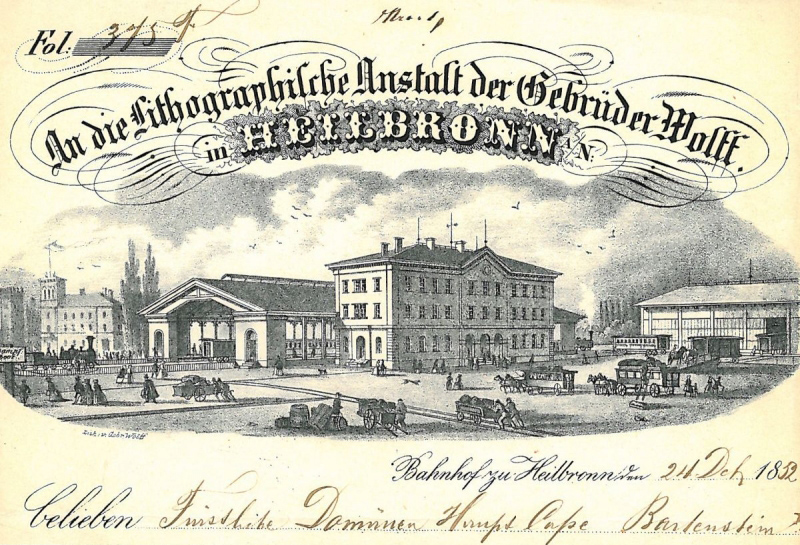 Fol: 375
An die Lithographische Anstalt der Gebrüder Wolff.
in HEILBRONN A/N:
Lith. v. Gebr Wolff
Bahnhof zu Heilbronn den 24 Oct 1852
belieben Fürstliche Domänen Haupt Casse Bartenstein